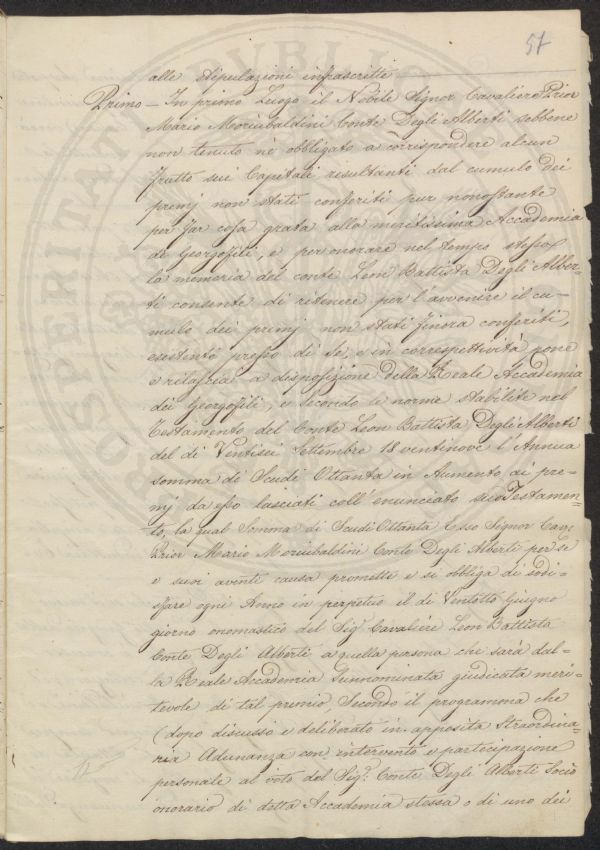 57
alle stipulazioni infrascritte
Primo _ In primo Luogo il Nobile Signor Cavaliere Prior
Mario Moriubaldini Conte Degli Alberti sebbene
non tenuto nè obbligato a corrispondere alcun
frutto sui Capitali risultanti dal cumulo dei
premj non stati conferiti pur nonostante
per far cosa grata alla meritissima Accademia
de Georgofili, e per onorare nel tempo stesso
la memoria del conte Leon Battista Degli Alber-
ti consente di ritenere per l'avvenire il cu-
mulo dei premj non stati finora conferiti,
esistente presso di se, e in correspettività pone
e rilascia a disposizione della Reale Accademia
dei Georgofili, e secondo le norme stabilite nel
Testamento del Conte Leon Battista Degli Alberti
del di Ventisei Settembre 18 ventinove l'Annua
somma di Scudi Ottanta in Aumento ai pre-
mj da esso lasciati coll'enunciato suo Testamen=
to, la qual Somma di Scudi Ottanta Esso Signor Cav:
Prior Mario Moriubaldini Conte Degli Alberti per se
e suoi aventi causa promette e si obbliga di sodi-
sfare ogni Anno in perpetuo il di Ventotto Giugno
giorno onomastico del Sig. Cavaliere Leon Battista
Conte Degli Alberti a quella persona che sarà dal-
la Reale Accademia Sunnominata giudicata meri-
tevole di tal premio, Secondo il programma che
(dopo discusso e deliberato in apposita Straordina-
ria Adunanza con intervento e partecipazione
personale al voto del Sig. Conte Degli Alberti Socio
onorario di detta Accademia stessa o di uno dei
PROSPERITATI
PVBLIC